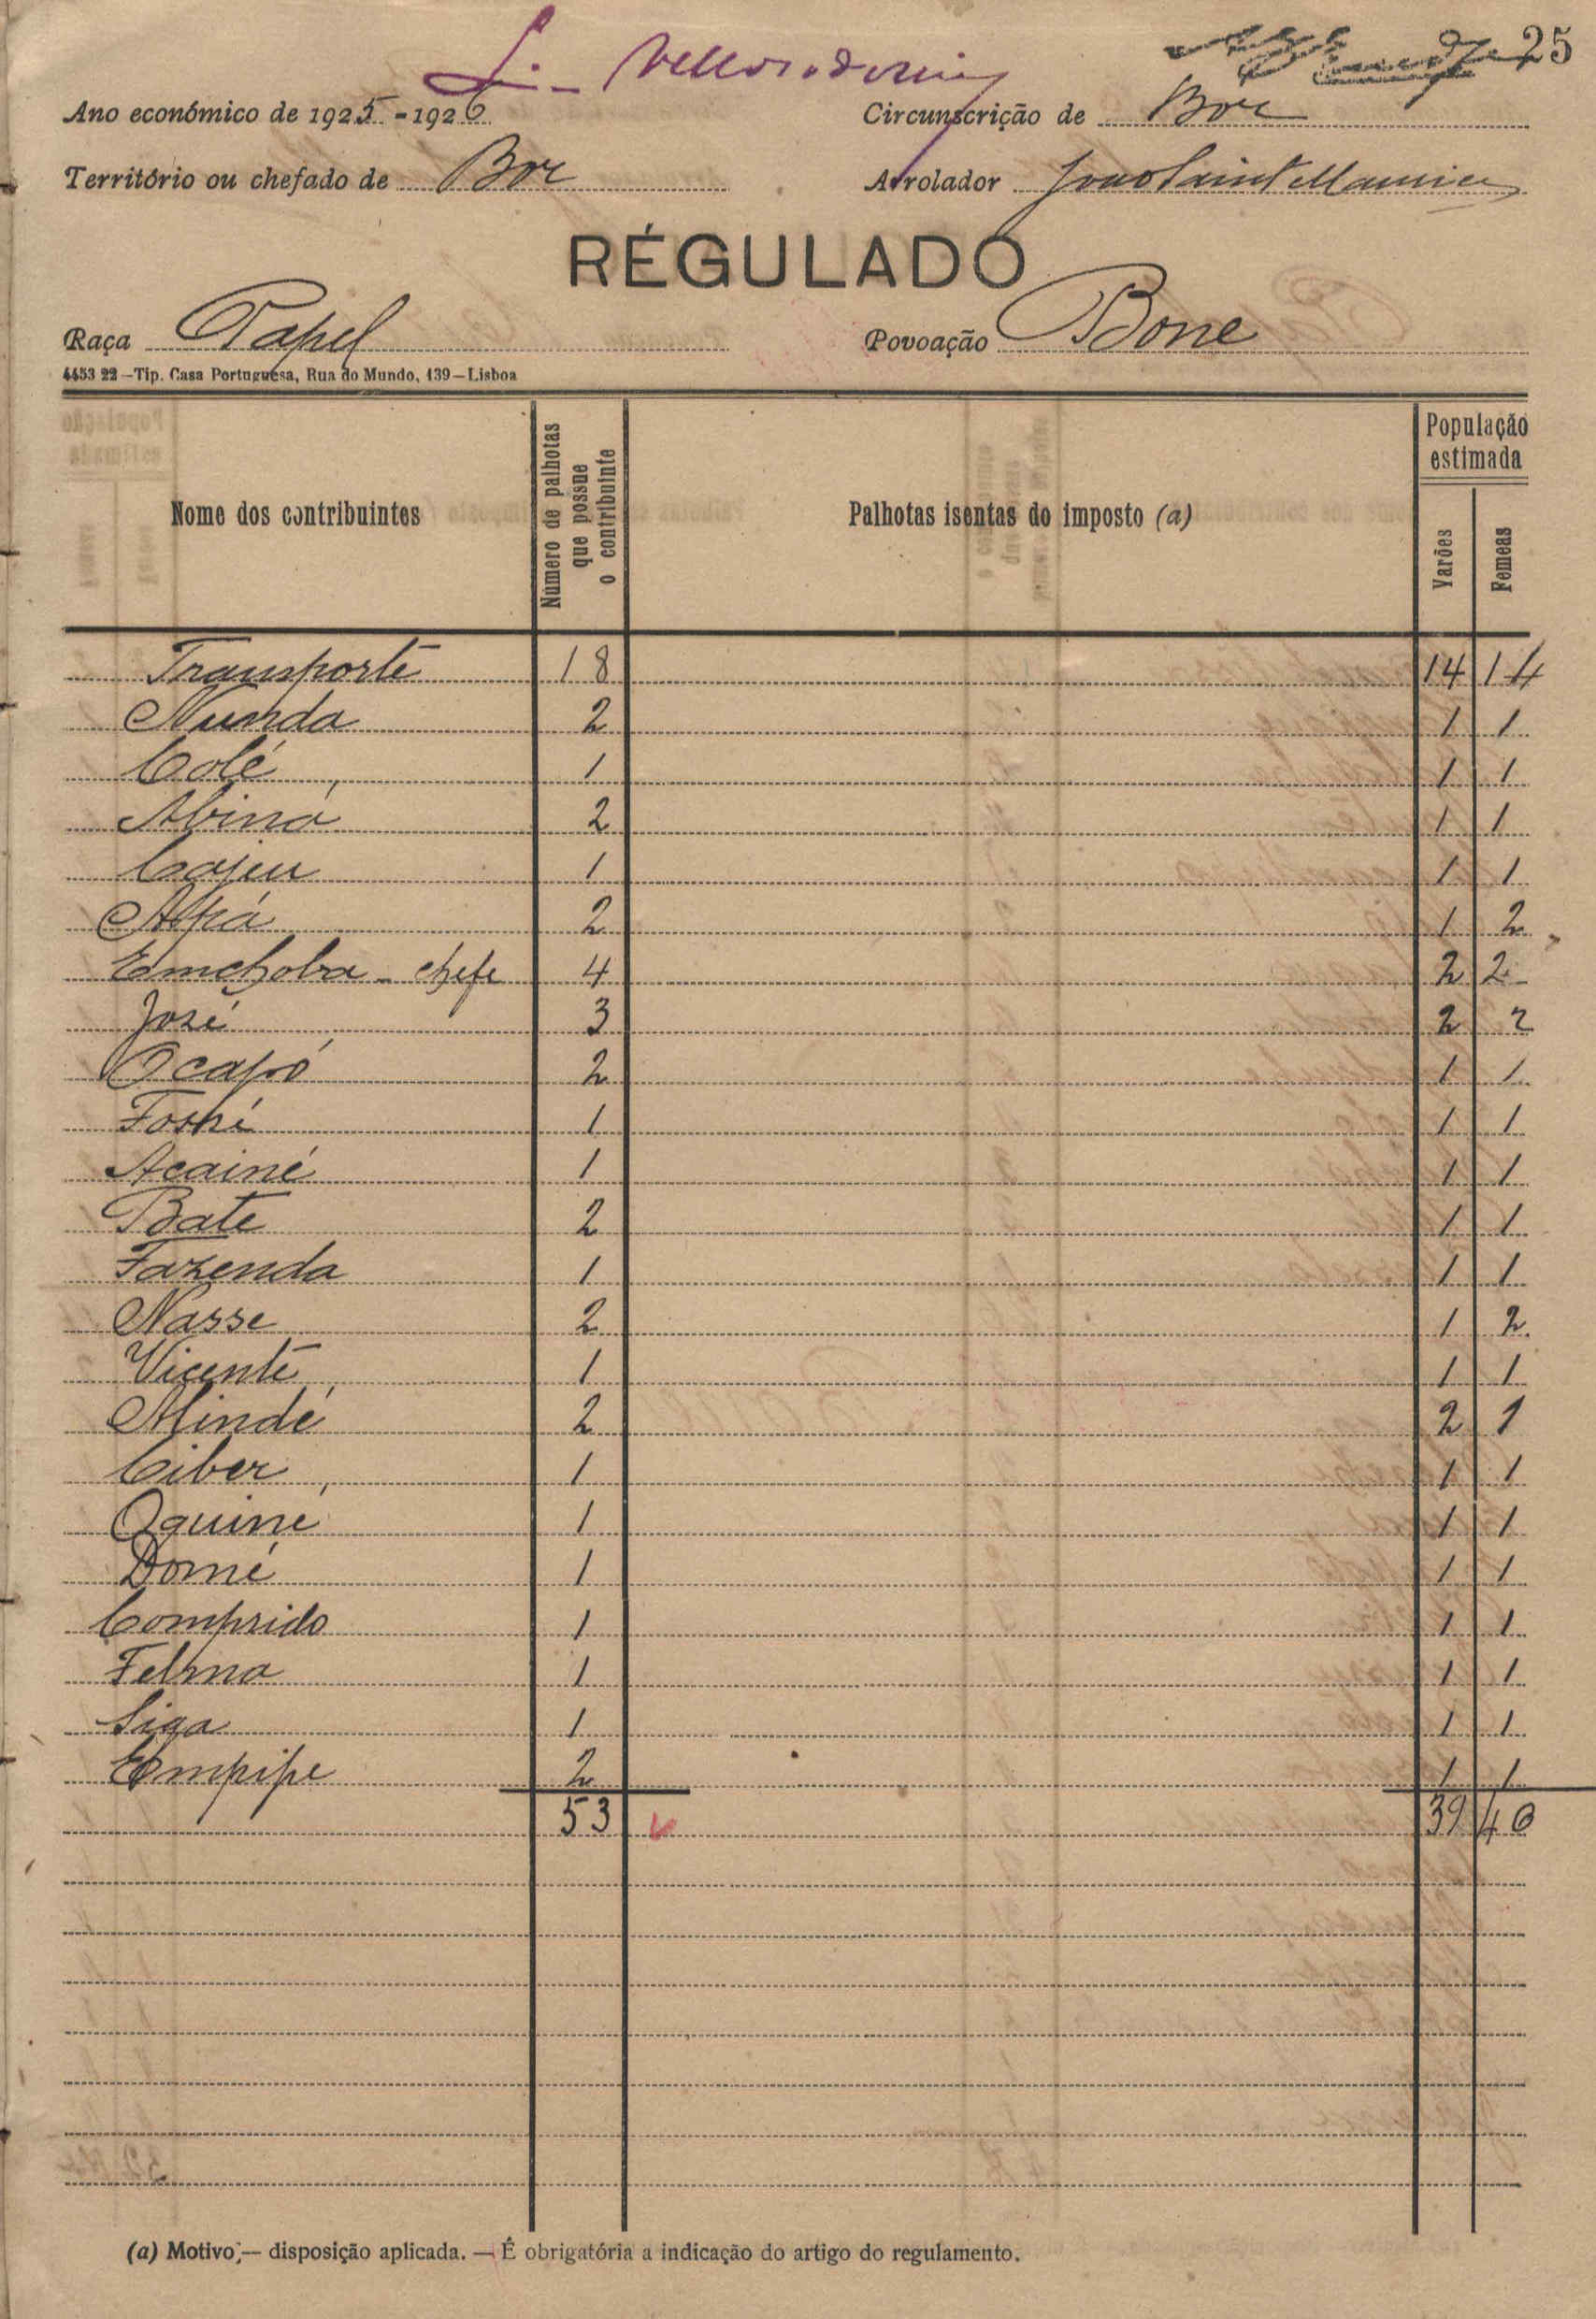 25
Ano económico de 1925-1926 Circunscrição de Bor
Território ou chefado de Bor Arrolador
RÉGULADO
Raça Papel Povoação Bone
4453 22—Tip. Casa Portuguesa, Rua do Mundo, 139—Lisboa
Nome dos contribuintes Numero de palhotas que possue o contribuinte Palhotas isentas do imposto (a) População estimada Varões Femeas
Transporte 18 14 14
Nunda 2 1 1
Colé 1 1 1
Abiná 2 1 1
Cajeu 1 1 1
2 1 2
Emchoba - chefe 4 2 2
José 3 2 2
Ocapó 2 1 1
1 1 1
Acainé 1 1 1
Bate 2 1 1
Fazenda 1 1 1
Nasse 2 1 2
Vicente 1 1 1
Mindé 2 2 1
Ciber 1 1 1
Oquiné 1 1 1
Domé 1 1 1
Comprido 1 1 1
1 1 1
Siga 1 1 1
Empipe 2 1 1
53 39 40
(a) Motivo;— disposição aplicada. — É obrigatória a indicação do artigo do regulamento.